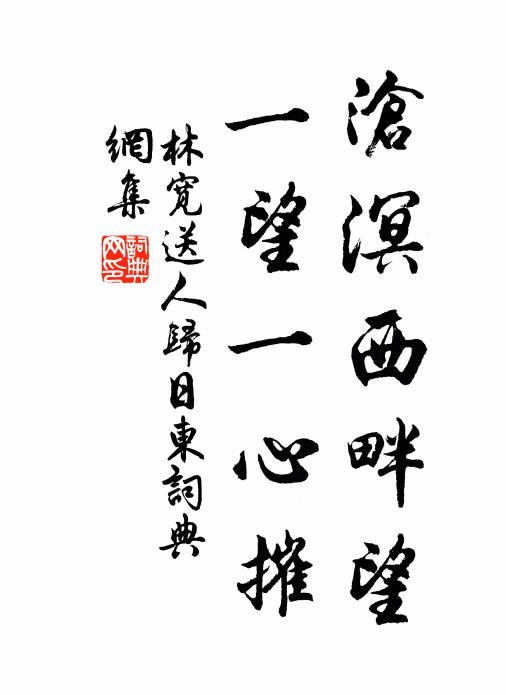 滄溟西畔望
一望一心摧
林寬送人歸日東詞典
網集
詞典
网印